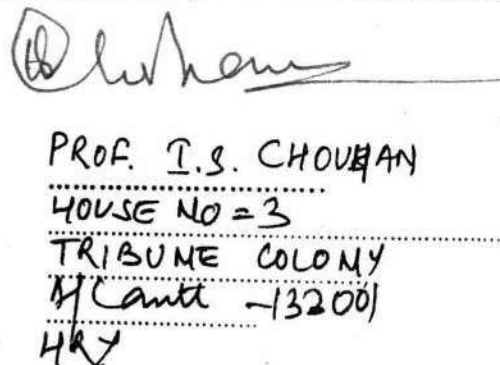 Chouhan
PROF. I.S. CHOUHAN
HOUSE NO = 3
TRIBUNE COLONY
A/Cantt - 133001
HRY